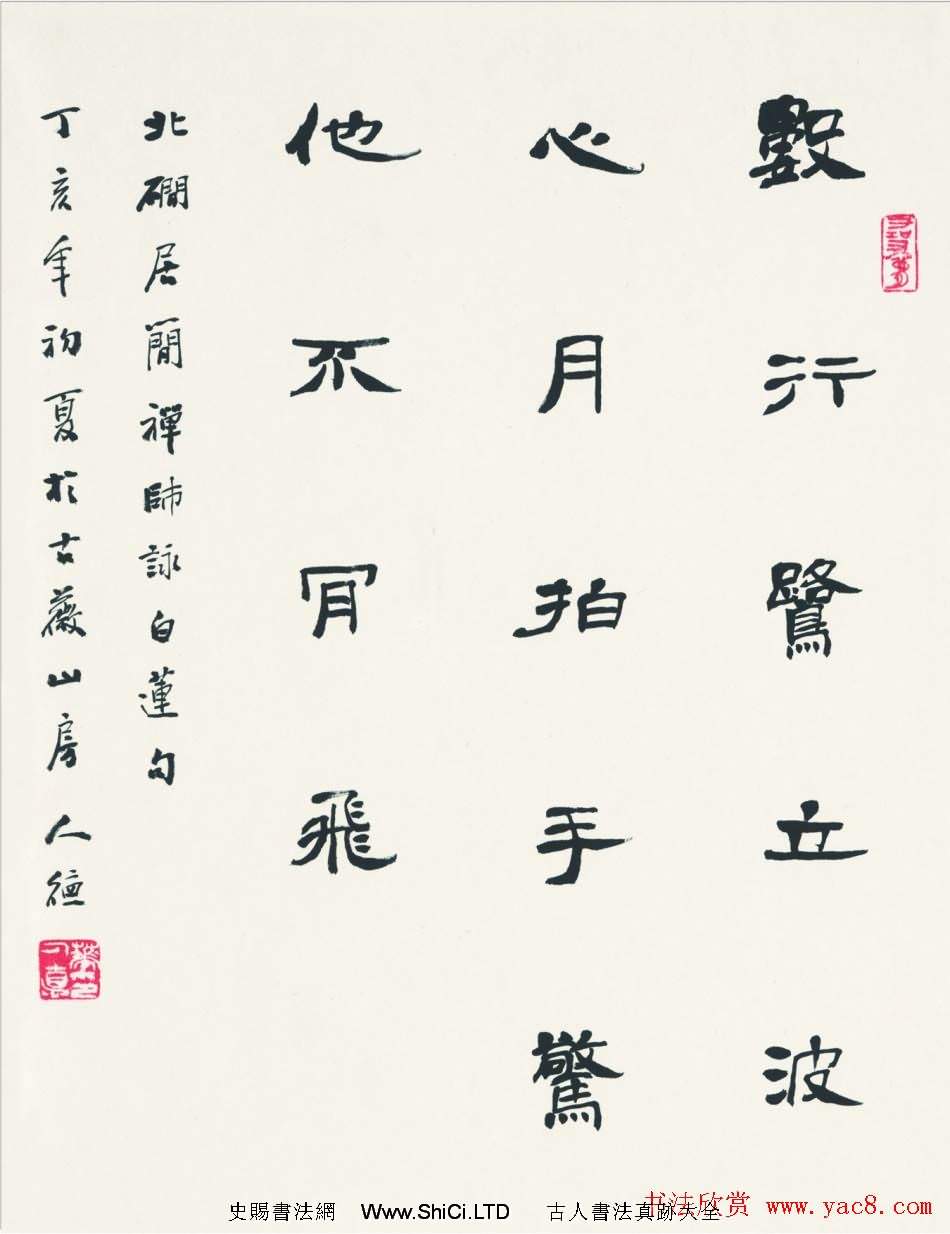 數行鷺立波
心月拍手驚
他不肎飛
北磵居簡禪師詠白蓮句
丁亥年初夏於古薇山房 人德
史賜書法網 Www.ShiCi.LTD 古人書法真跡大全
书法欣赏 www.yac8.com